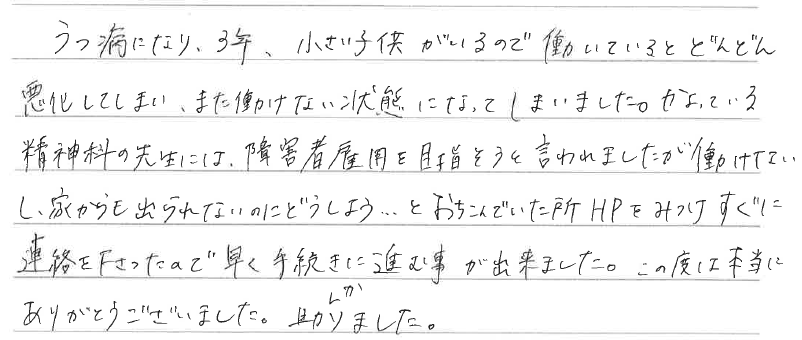 うつ病になり、3年、小さい子供がいるので働いているとどんどん
悪化してしまい、また働けない状態になってしまいました。かよっている
精神科の先生には、障害者雇用を目指そうと言われましたが働けてない
し、家からも出られないのにどうしよう…とおちこんでいた所HPをみつけすぐに
連絡を下さったので早く手続きに進む事が出来ました。この度は本当に
ありがとうございました。助かりました。